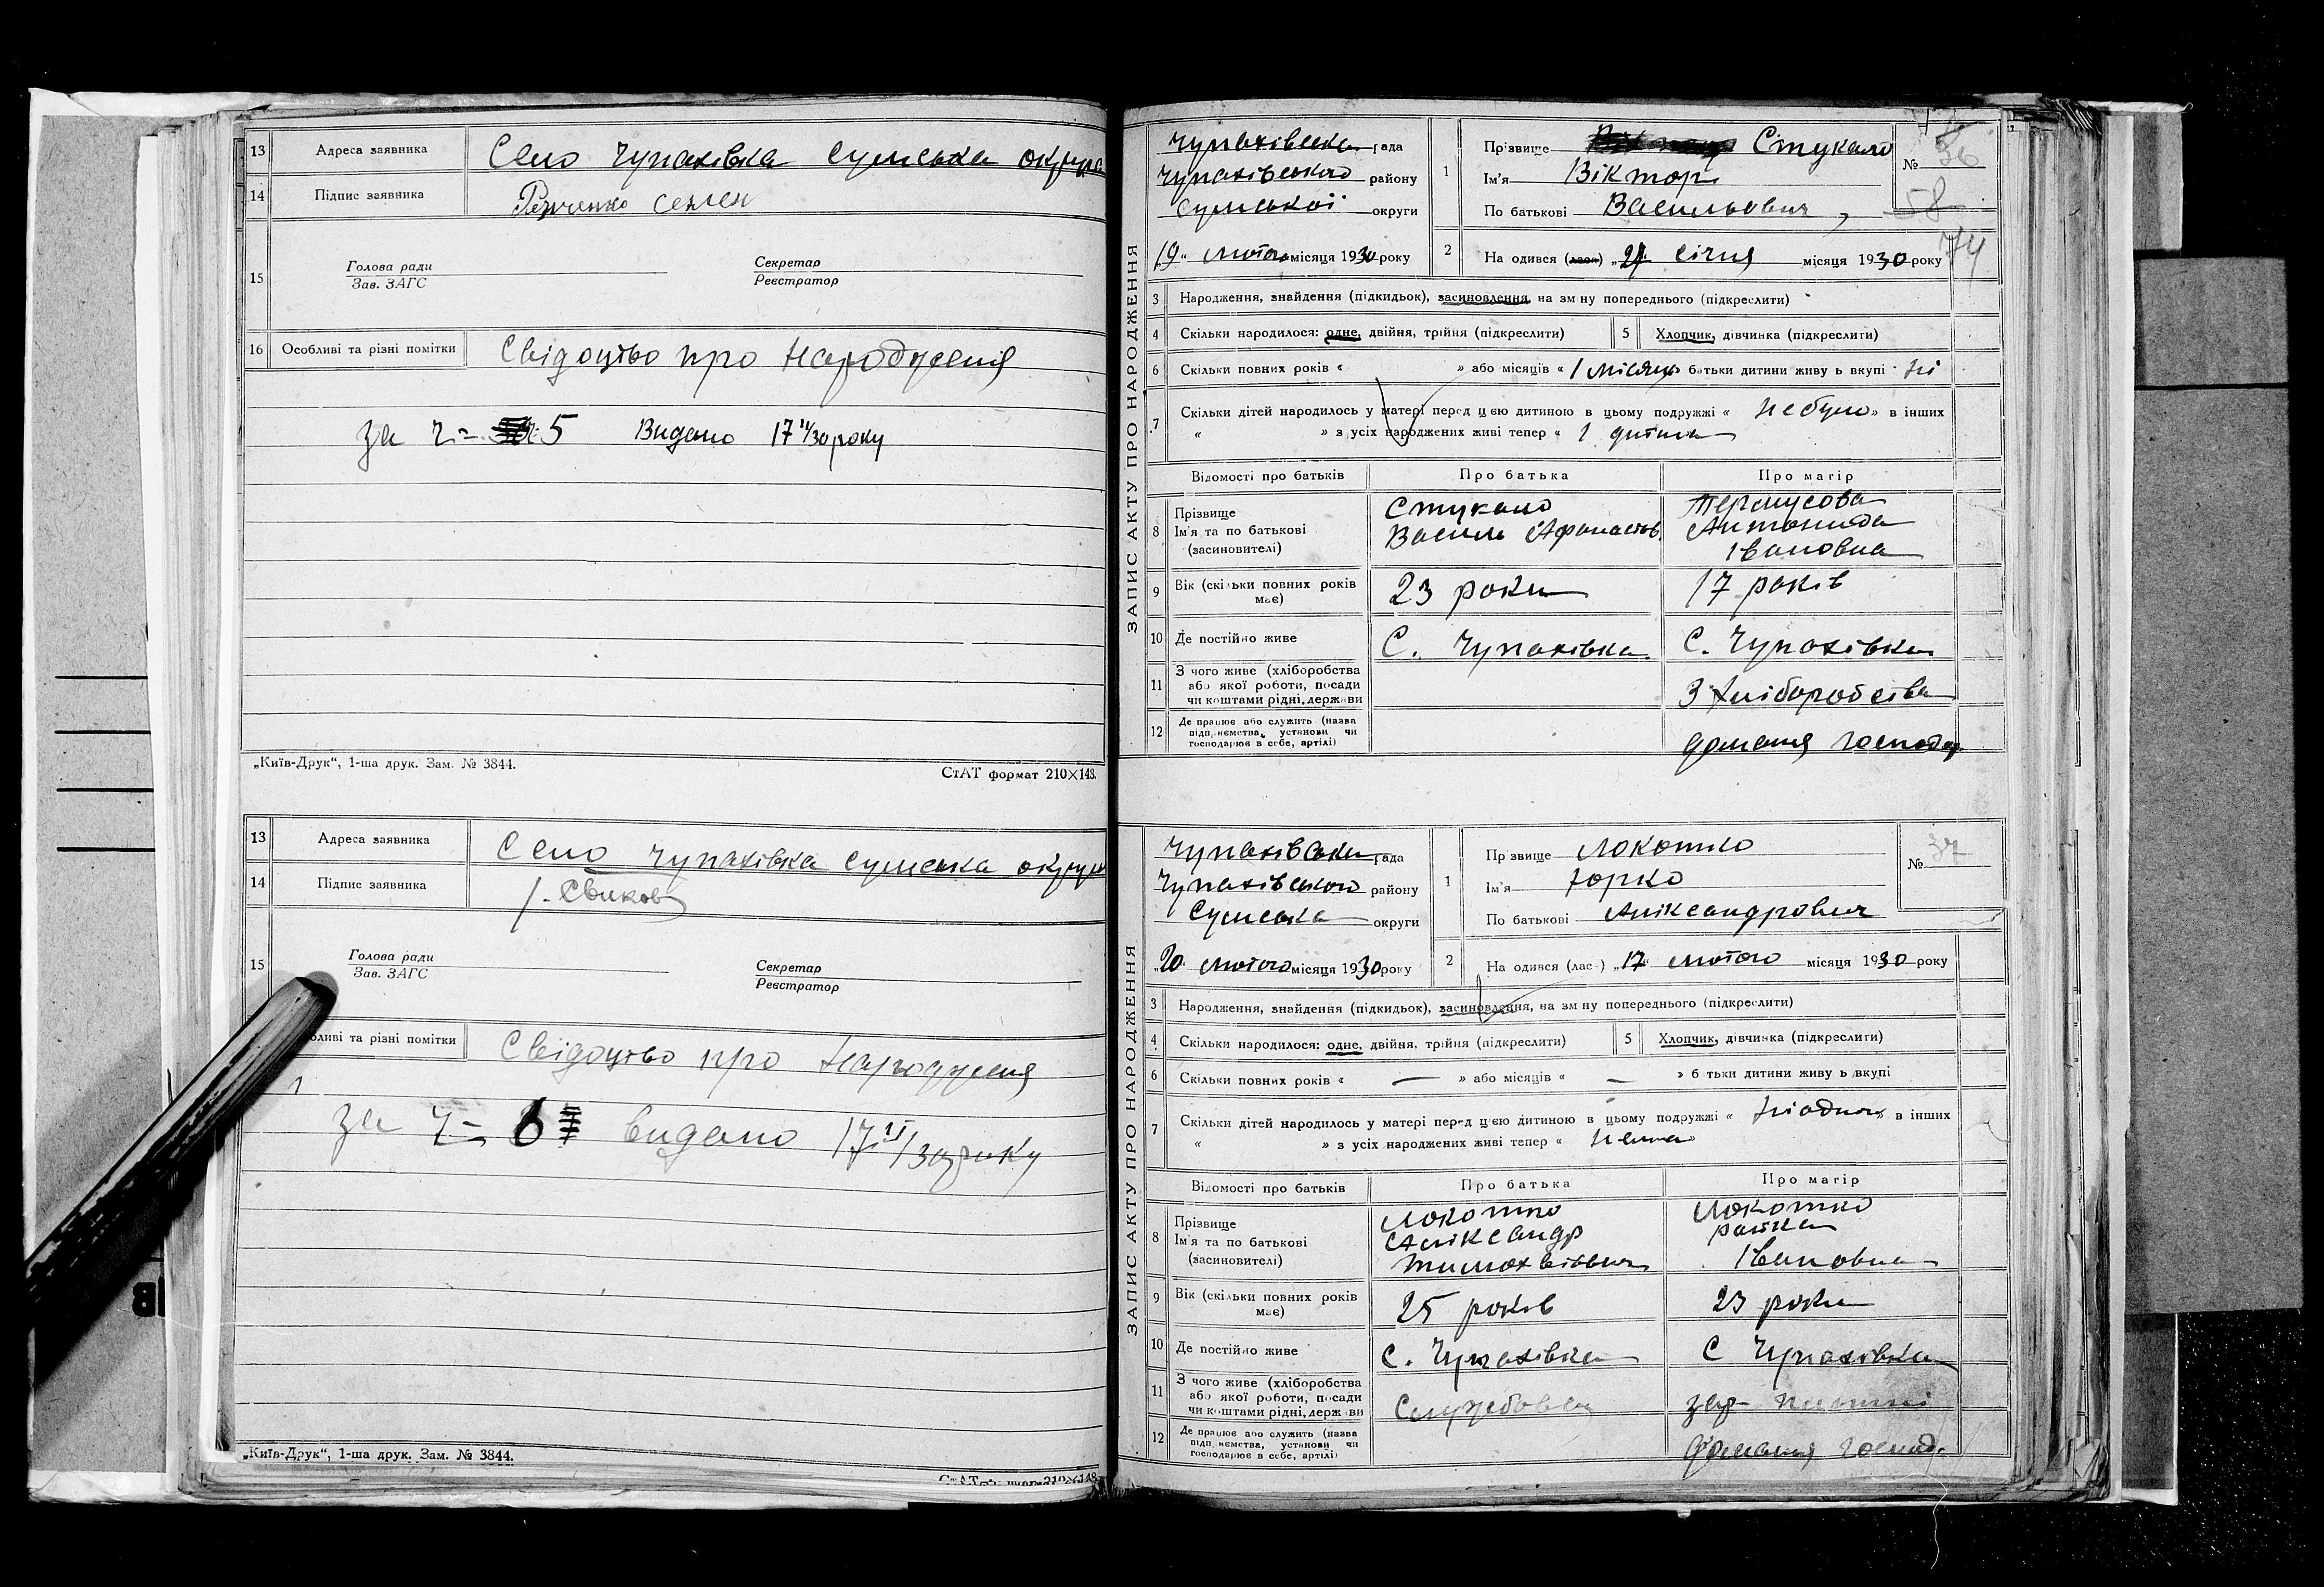 13 Адреса заявника Село Чупахівка Сумська округа
14 Підпис заявника Семен
15 Голова ради Секретар
Зав. ЗАГС Реєстратор
16 Особливі та різні помітки Свідоцтво про Народження
за ч- 5 Видано 17 ІІ/30 року
„Київ-Друк“, 1-ша друк. Зам. № 3844. СтАТ формат 210×148.
13 Адреса заявника Село Чупахівка Сумська округа
14 Підпис заявника
15 Голова ради Секретар
Зав. ЗАГС Реєстратор
бливі та різні помітки Свідоцтво про Народження
за ч- 6 видано 17 ІІ/30 року
„Київ-Друк“, 1-ша друк. Зам. № 3844.
ЗАПИС АКТУ ПРО НАРОДЖЕННЯ
Чупахівська рада
Чупахівського району
Сумської округи
„19“ Лютого місяця 1930 року
1 Прізвище Стукало
Ім'я Віктор
По батькові Васильович
№ 36
58
74
2 На одився (лась) „21“ Січня місяця 1930 року
3 Народження, знайдення (підкидьок), засиновлення, на зм ну попереднього (підкреслити)
4 Скільки народилося: одне, двійня, трійня (підкреслити) 5 Хлопчик, дівчинка (підкреслити)
6 Скільки повних років « » або місяців « 1 місяць » батьки дитини живу ь вкупі Ні
7 Скільки дітей народилось у матері перед цією дитиною в цьому подружжі « Небуло » в інших
« » з усіх народжених живі тепер « 1 дитина
Відомості про батьків Про батька Про матір
8 Прізвище
Ім'я та по батькові
(засиновителі)
Стукало
Василь Афанасьєв.
Антонида
Івановна
9 Вік (скільки повних років має) 23 роки 17 років
10 Де постійно живе С. Чупахівка. С. Чупахівка
11 З чого живе (хліборобства
або якої роботи, посади
чи коштами рідні, держави
З Хліборобства
12 Де працює або служить (назва
підприємства, установи чи
господарює в себе, артілі)
домашня господар
ЗАПИС АКТУ ПРО НАРОДЖЕННЯ
Чупахівська рада
Чупахівського району
Сумська округи
„20“ Лютого місяця 1930 року
1 Пр звище Локотко
Ім'я Юрко
По батькові Аліксандрович
№ 37
2 На одився (лас ) „17“ Лютого місяця 1930 року
3 Народження, знайдення (підкидьок), засиновлення, на зм ну попереднього (підкреслити)
4 Скільки народилося: одне, двійня, трійня (підкреслити) 5 Хлопчик, дівчинка (підкреслити)
6 Скільки повних років « — » або місяців « — » б тьки дитини живу ь вкупі
7 Скільки дітей народилось у матері перед цією дитиною в цьому подружжі « » в інших
« » з усіх народжених живі тепер « Нема»
Відомості про батьків Про батька Про матір
8 Прізвище
Ім'я та по батькові
(засиновителі)
Локотко
Аліксандр
Тимохвійович
Локотко
Івановна
9 Вік (скільки повних років має) 25 років 23 роки
10 Де постійно живе С. Чупахівка С Чупахівка
11 З чого живе (хліборобства
або якої роботи, посади
чи коштами рідні, держави
Службовец
12 Де працює або служить (назва
підприємства, установи чи
господарює в себе, артілі)
домашня господ.